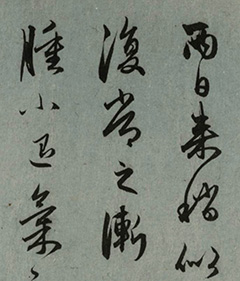 兩日来稍似
復常之漸
腫小退氣